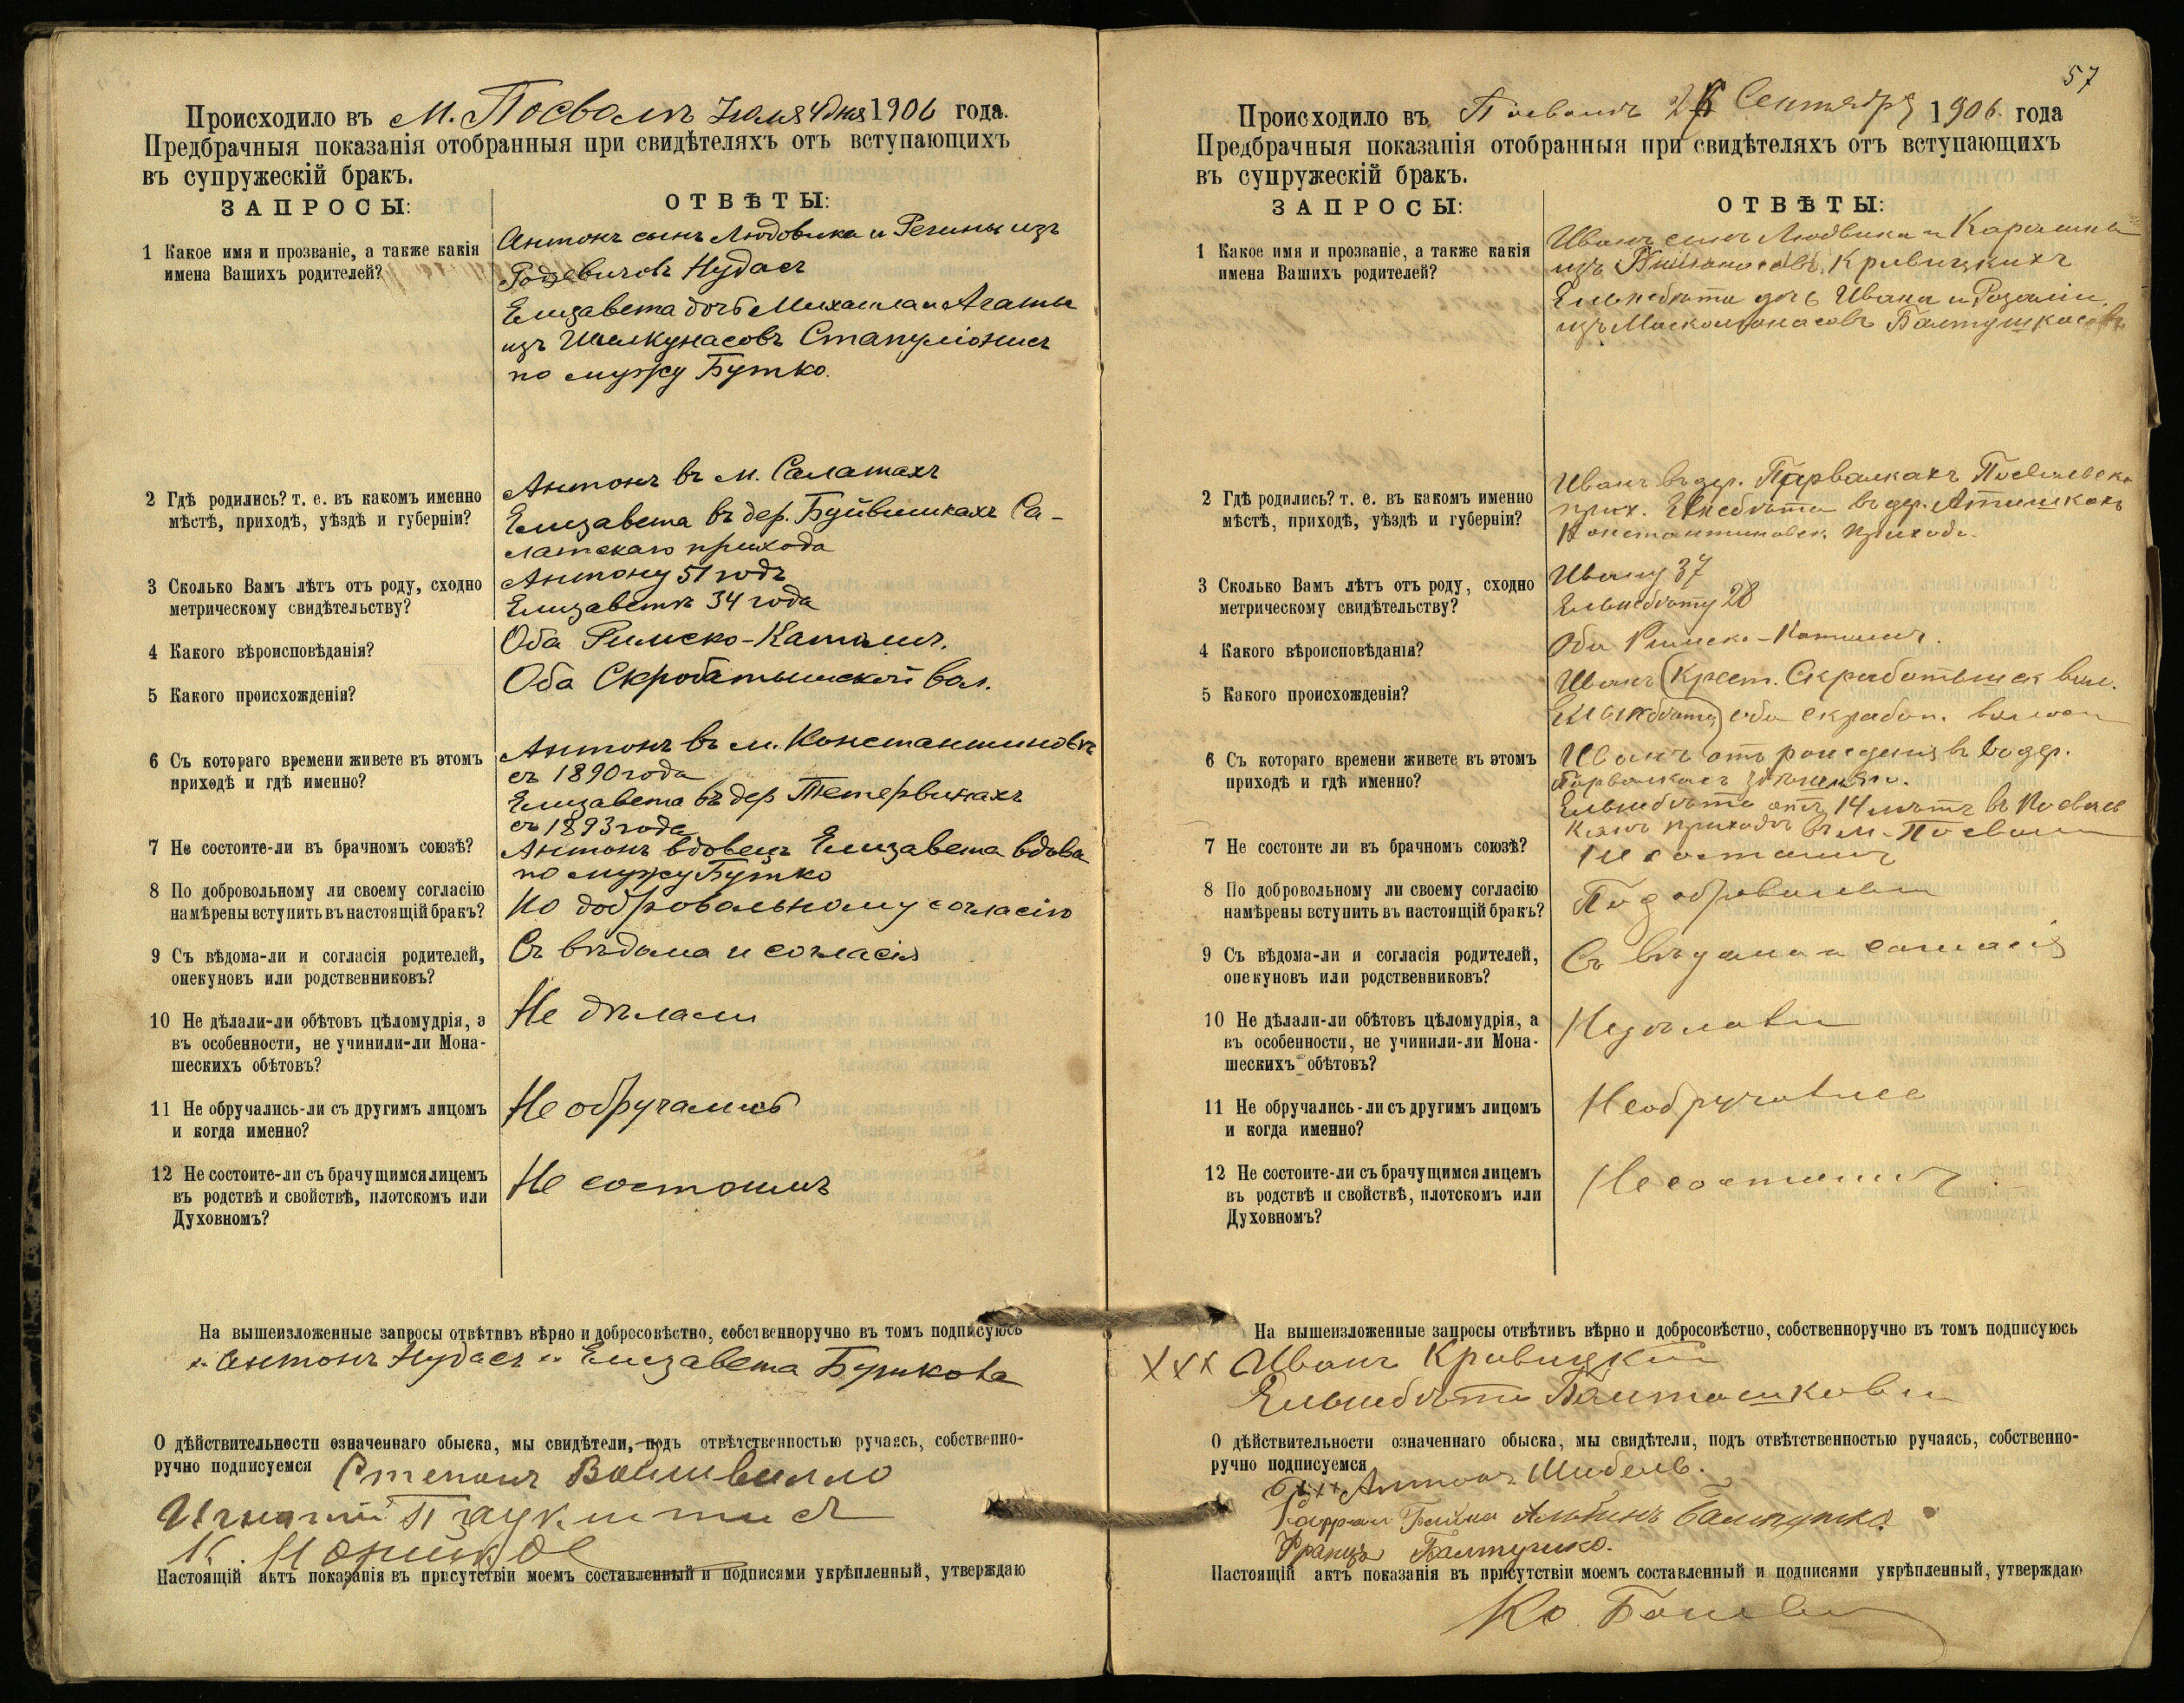 Происходило въ м. Посволь Іюля 4 дня 1906 года.
Предбрачныя показанія отобранныя при свидѣтеляхъ отъ вступающихъ
въ супружескій бракъ.
ЗАПРОСЫ:
ОТВѢТЫ:
1 Какое имя и прозваніе, а также какія
имена Вашихъ родителей?
Антонъ сынъ Людовика и Регины изъ
Родзевичовъ Нудасъ
Елизавета дочь Михаила и Агаты
изъ Шалкунасовъ Стапуліонисъ
по мужу Бутко.
2 Гдѣ родились? т. е. въ какомъ именно
мѣстѣ, приходѣ, уѣздѣ и губерніи?
Антонъ въ м. Салатахъ
Елизавета въ дер. Буйвишкахъ Са-
латскаго прихода
3 Сколько Вамъ лѣтъ отъ роду, сходно
метрическому свидѣтельству?
Антону 51 годъ
Елизаветѣ 34 года
4 Какого вѣроисповѣданія?
Оба Римско-Католич.
5 Какого происхожденія?
Оба Скробатышской вол.
6 Съ котораго времени живете въ этомъ
приходѣ и гдѣ именно?
Антонъ въ м. Константиновѣ
съ 1890 года
Елизавета въ дер Тетервинахъ
съ 1893 года
7 Не состоите-ли въ брачномъ союзѣ?
Антонъ вдовецъ Елизавета вдова
по мужу Бутко
8 По добровольному ли своему согласію
намѣрены вступить въ настоящій бракъ?
По добровольному согласію
9 Съ вѣдома-ли и согласія родителей,
опекуновъ или родственниковъ?
Съ вѣдома и согласія
10 Не дѣлали-ли обѣтовъ цѣломудрія, а
въ особенности, не учинили-ли Мона-
шескихъ обѣтовъ?
Не дѣлали
11 Не обручались-ли съ другимъ лицомъ
и когда именно?
Не обручались
12 Не состоите-ли съ брачущимся лицемъ
въ родствѣ и свойствѣ, плотскомъ или
Духовномъ?
Не состоимъ
На вышеизложенные запросы отвѣтивъ вѣрно и добросовѣстно, собственноручно въ томъ подписуюсь
Антонъ Нудасъ и Елизавета Буткова
О дѣйствительности означеннаго обыска, мы свидѣтели, подъ отвѣтственностью ручаясь, собственно-
ручно подписуемся Степанъ
Игнатій
Настоящій актъ показанія въ присутствіи моемъ составленный и подписями укрѣпленный, утверждаю
57
Происходило въ Посволь 26 Сентября 1906 года
Предбрачныя показанія отобранныя при свидѣтеляхъ отъ вступающихъ
въ супружескій бракъ.
ЗАПРОСЫ:
ОТВѢТЫ:
1 Какое имя и прозваніе, а также какія
имена Вашихъ родителей?
Иванъ сынъ Людвика и Каролины
изъ Кривицкихъ
дочь Ивана и Розаліи
изъ
2 Гдѣ родились? т. е. въ какомъ именно
мѣстѣ, приходѣ, уѣздѣ и губерніи?
Иванъ въ дер. Парвалкахъ Посвольск.
прих. въ дер.
Константиновск. прихода.
3 Сколько Вамъ лѣтъ отъ роду, сходно
метрическому свидѣтельству?
Ивану 37
28
4 Какого вѣроисповѣданія?
Оба Римско-Католич.
5 Какого происхожденія?
Иванъ (Крест. Скрабатышск вол.
оба скрабат. волости
6 Съ котораго времени живете въ этомъ
приходѣ и гдѣ именно?
Иванъ отъ рожденія въ дер.
Парвалкахъ
14 лѣтъ въ Посволь
приходѣ въ м. Посволи
7 Не состоите ли въ брачномъ союзѣ?
Не состоимъ
8 По добровольному ли своему согласію
намѣрены вступить въ настоящій бракъ?
По добровольн
9 Съ вѣдома-ли и согласія родителей,
опекуновъ или родственниковъ?
Съ вѣдома и согласія
10 Не дѣлали-ли обѣтовъ цѣломудрія, а
въ особенности, не учинили-ли Мона-
шескихъ обѣтовъ?
Не дѣлали
11 Не обручались-ли съ другимъ лицомъ
и когда именно?
Не обручались
12 Не состоите-ли съ брачущимся лицемъ
въ родствѣ и свойствѣ, плотскомъ или
Духовномъ?
Не состоимъ
На вышеизложенные запросы отвѣтивъ вѣрно и добросовѣстно, собственноручно въ томъ подписуюсь
ХХХ Иванъ Кривицкій
О дѣйствительности означеннаго обыска, мы свидѣтели, подъ отвѣтственностью ручаясь, собственно-
ручно подписуемся
Антонъ
Балтушко
Францъ Балтушко.
Настоящій актъ показанія въ присутствіи моемъ составленный и подписями укрѣпленный, утверждаю